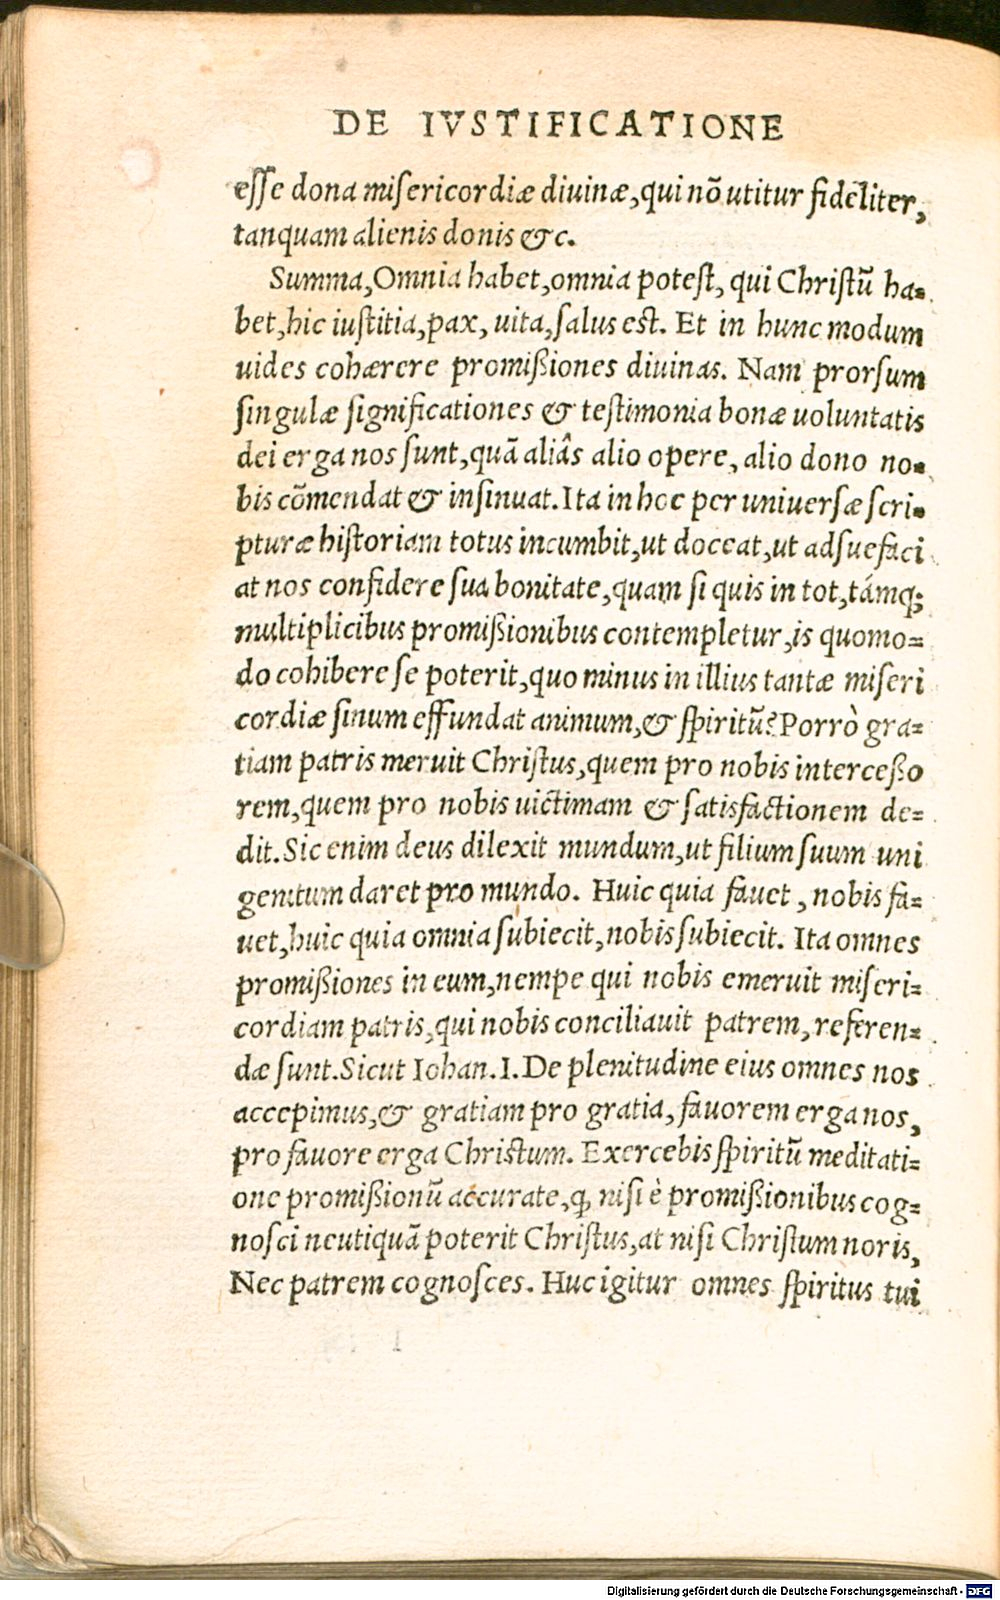 DE IVSTIFICATIONE
eſſe dona miſericordiæ diuinæ,qui nõ utitur fideliter,
tanquam alienis donis &c.
Summa,Omnia habet,omnia poteſt, qui Chriſtũ ha⸗
bet,hic iuſtitia,pax, uita,ſalus est. Et in hunc modum
uides cohærere promißiones diuinas. Nam prorſum
ſingulæ ſignificationes & teſtimonia bonæ uoluntatis
dei erga nos ſunt,quã aliâs alio opere, alio dono no⸗
bis cõmendat & inſinuat. Ita in hoc per uniuerſæ ſcri⸗
pturæ hiſtoriam totus incumbit,ut doceat,ut adſuefaci
at nos confidere sua bonitate,quam ſi quis in tot,támq;
multiplicibus promißionibus contempletur,is quomo⸗
do cohibere ſe poterit,quo minus in illius tantæ miſeri
cordiæ ſinum effundat animum,& ſpiritũ? Porrò gra⸗
tiam patris meruit Chriſtus,quem pro nobis interceßo
rem,quem pro nobis uictimam & ſatisfactionem de⸗
dit. Sic enim deus dilexit mundum,ut filium ſuum uni
genitum daret pro mundo. Huic quia fauet , nobis fa⸗
uet,huic quia omnia ſubiecit,nobis ſubiecit. Ita omnes
promißiones in eum,nempe qui nobis emeruit miſeri⸗
cordiam patris,qui nobis conciliauit patrem, referen⸗
dæ ſunt.Sicut Iohan.I.De plenitudine eius omnes nos
accepimus,& gratiam pro gratia, fauorem erga nos,
pro fauore erga Christum. Exercebis ſpiritũ meditati⸗
one promißionũ accurate,ꝙ niſi è promißionibus cog⸗
noſci neutiquã poterit Chriſtus,at niſi Chriſtum noris,
Nec patrem cognoſces. Huc igitur omnes ſpiritus tui
Digitalisierung gefördert durch die Deutsche Forschungsgemeinschaft - DFG